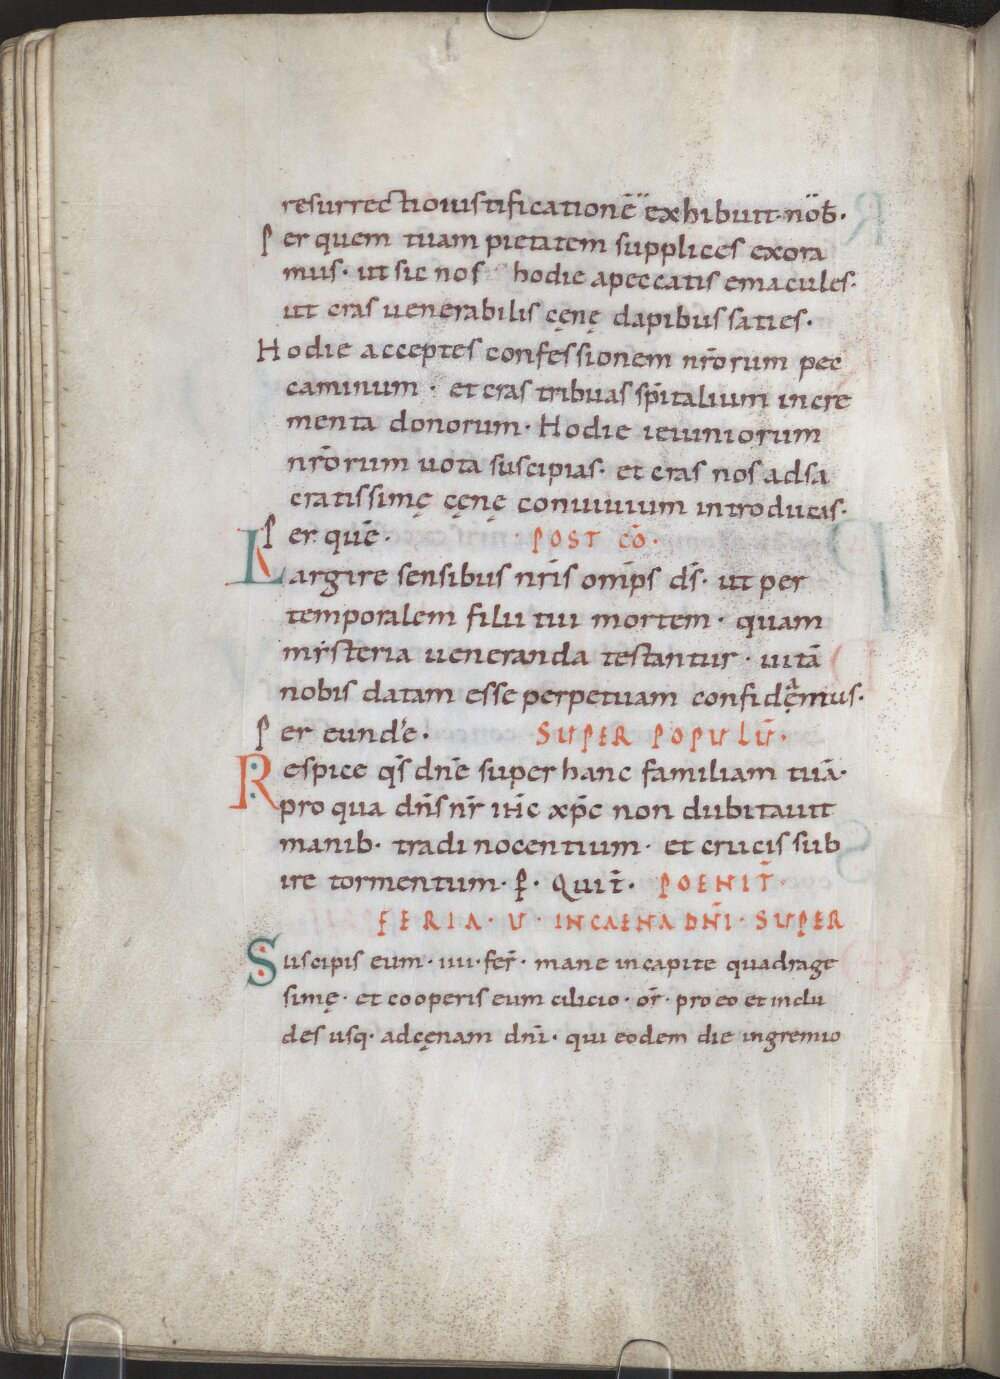 resurrectio iustificationē exhibuit nob̄.
Per quem tuam pietatem supplices exora
mus. ut sic nos hodie a peccatis emacules.
ut cras uenerabilis cęnę dapibus saties.
Hodie acceptes confessionem nr̄orum pec
caminum. et cras tribuas sp̄italium incre
menta donorum. Hodie ieiuniorum
nr̄orum uota suscipias. et cras nos ad sa
cratissimę cęnę conuiuium introducas.
Per quē. POST CŌ.
Largire sensibus nr̄is omp̄s ds̄. ut per
temporalem filii tui mortem. quam
mẏsteria ueneranda testantur. uitā
nobis datam esse perpetuam confidęamus.
Per eundē. SUPER POPULŪ.
Respice qs̄ dn̄e super hanc familiam tuā.
pro qua dn̄s nr̄ ih̄c xp̄c non dubitauit
manib. tradi nocentium. et crucis sub
ire tormentum. P̄. Qui t̄. POENIT̄.
FERIA. U. IN CAENA DN̄I. SUPER
Suscipis eum. iiii. fer̄. mane in capite quadrage
simę. et cooperis eum cilicio. or̄. pro eo et inclu
des usq. ad cęnam dn̄i. qui eodem die in gremio